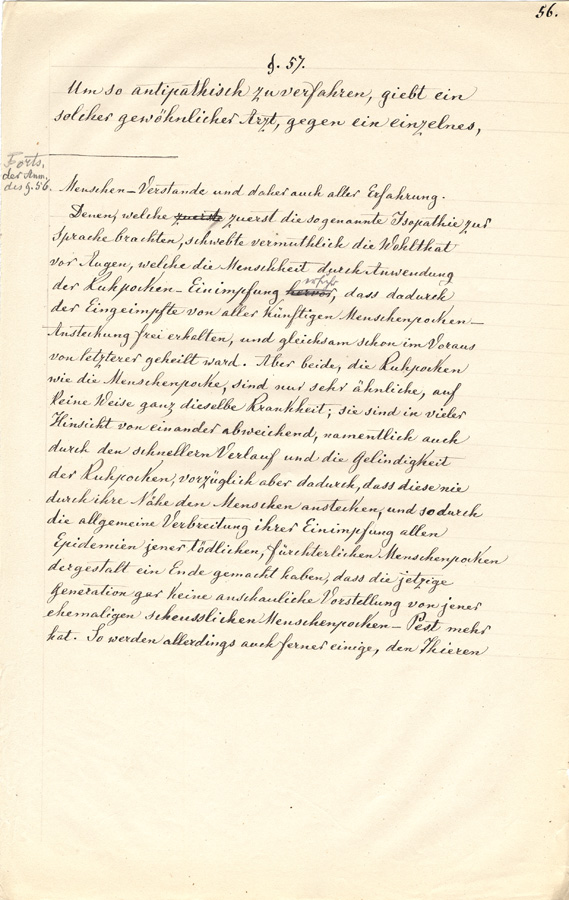 56.
§. 57.
Um so antipathisch zu verfahren, giebt ein
solcher gewöhnlicher Arzt, gegen ein einzelnes,
Forts.
der Anm.
des §. 56.
Menschen-Verstande und daher auch aller Erfahrung.
Denen, welche zuerste zuerst die sogenannte Isopathie zur
Sprache brachten, schwebte vermuthlich die Wohlthat
vor Augen, welche die Menschheit durch Anwendung
der Kuhpocken-Einimpfung hervor, dass dadurch
der Eingeimpfte von aller künftigen Menschenpocken-
Ansteckung frei erhalten, und gleichsam schon im Voraus
von letzterer geheilt ward. Aber beide, die Kuhpocken
wie die Menschenpocke, sind nur sehr ähnliche, auf
keine Weise ganz dieselbe Krankheit; sie sind in vieler
Hinsicht von einander abweichend, namentlich auch
durch den schnellern Verlauf und die Gelindigkeit
der Kuhpocken, vorzüglich aber dadurch, dass diese nie
durch ihre Nähe den Menschen anstecken, und so durch
die allgemeine Verbreitung ihrer Einimpfung allen
Epidemien jener tödlichen, fürchterlichen Menschenpocken
dergestalt ein Ende gemacht haben, dass die jetzige
Generation gar keine anschauliche Vorstellung von jener
ehemaligen scheusslichen Menschenpocken-Pest mehr
hat. So werden allerdings auch ferner einige, den Thieren